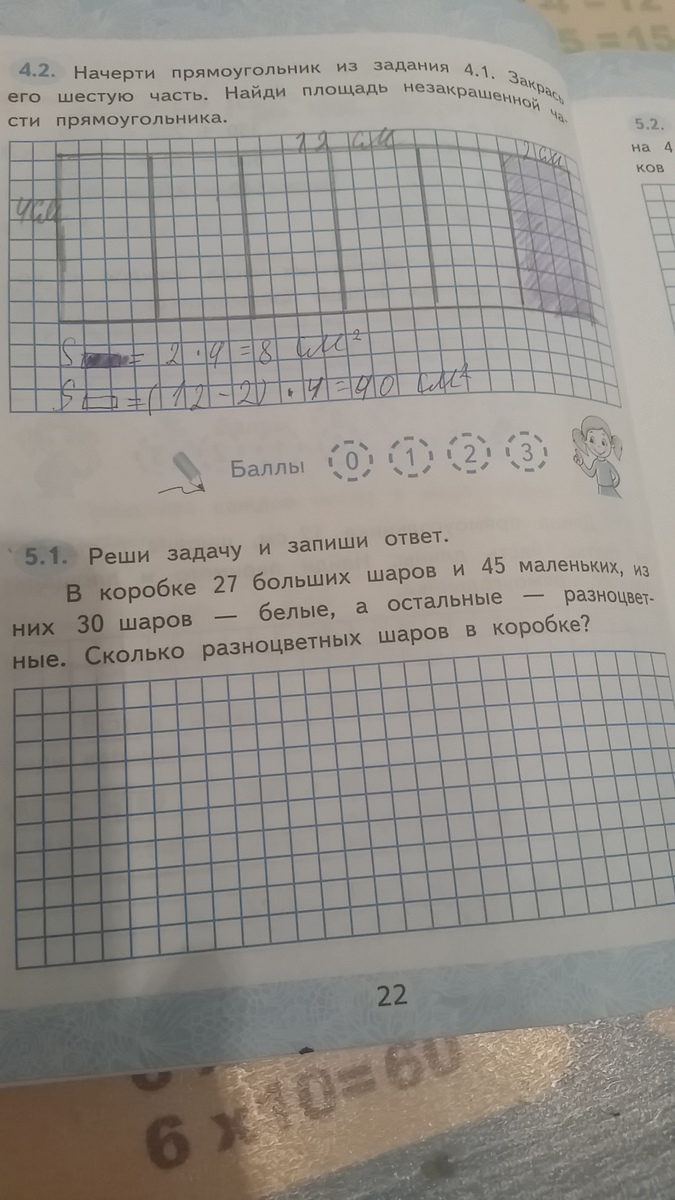 4.2. Начерти прямоугольник из задания 4.1. Закрась
его шестую часть. Найди площадь незакрашенной ча-
сти прямоугольника.
12 см
2 см
4см
S = 2 · 4 = 8 см²
S = (12 - 2) · 4 = 40 см²
Баллы 0 1 2 3
5.1. Реши задачу и запиши ответ.
В коробке 27 больших шаров и 45 маленьких, из
них 30 шаров — белые, а остальные — разноцвет-
ные. Сколько разноцветных шаров в коробке?
22
5.2.
на 4
ков
=15
6 x10=60